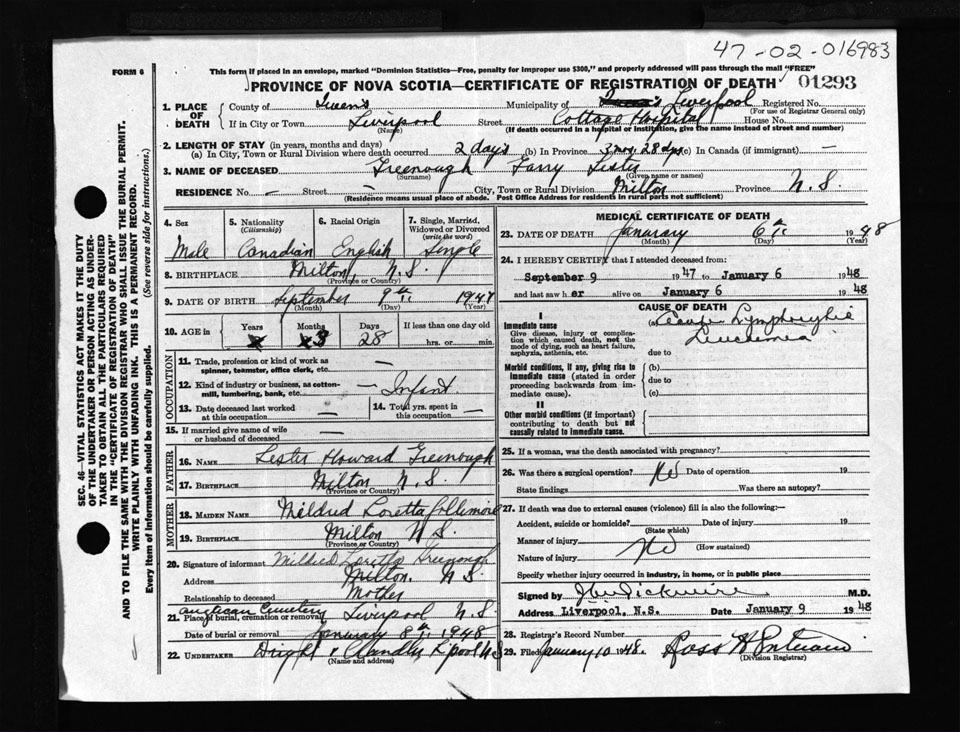 47-02-016983
FORM 6
This form if placed in an envelope, marked "Dominion Statistics—Free, penalty for improper use $300," and properly addressed will pass through the mail "FREE"
PROVINCE OF NOVA SCOTIA—CERTIFICATE OF REGISTRATION OF DEATH
01293
SEC. 46—VITAL STATISTICS ACT MAKES IT THE DUTY
OF THE UNDERTAKER OR PERSON ACTING AS UNDER-
TAKER TO OBTAIN ALL THE PARTICULARS REQUIRED
IN THE "CERTIFICATE OF REGISTRATION OF DEATH"
AND TO FILE THE SAME WITH THE DIVISION REGISTRAR WHO SHALL ISSUE THE BURIAL PERMIT.
WRITE PLAINLY WITH UNFADING INK. THIS IS A PERMANENT RECORD.
Every item of information should be carefully supplied. (See reverse side for instructions.)
1. PLACE OF DEATH County of Queen's Municipality of Liverpool Registered No.
(For use of Registrar General only)
If in City or Town Liverpool Street Cottage Hospital House No.
(Name) (If death occurred in a hospital or institution, give the name instead of street and number)
2. LENGTH OF STAY (in years, months and days)
(a) In City, Town or Rural Division where death occurred 2 days (b) In Province 3 mos. 28 dys (c) In Canada (if immigrant) —
3. NAME OF DECEASED Greenough Garry Lester
(Surname) (Given name or names)
RESIDENCE No. — Street — City, Town or Rural Division Milton Province N.S.
(Residence means usual place of abode. Post Office Address for residents in rural parts not sufficient)
4. Sex Male
5. Nationality (Citizenship) Canadian
6. Racial Origin English
7. Single, Married, Widowed or Divorced (write the word) Single
8. BIRTHPLACE Milton, N.S.
(Province or Country)
9. DATE OF BIRTH September 9th 1947
(Month) (Day) (Year)
10. AGE in Years x Months 3 Days 28 If less than one day old
hrs. or min.
OCCUPATION
11. Trade, profession or kind of work as spinner, teamster, office clerk, etc. —
12. Kind of industry or business, as cotton-mill, lumbering, bank, etc. — Infant
13. Date deceased last worked at this occupation — 14. Total yrs. spent in this occupation —
15. If married give name of wife or husband of deceased —
FATHER
16. NAME Lester Howard Greenough
17. BIRTHPLACE Milton N.S.
(Province or Country)
MOTHER
18. MAIDEN NAME Mildred Loretta Gollimore
19. BIRTHPLACE Milton N.S.
(Province or Country)
20. Signature of informant Mildred Loretta Greenough
Address Milton. N.S.
Relationship to deceased Mother
21. Place of burial, cremation or removal Anglican Cemetery Liverpool N.S.
Date of burial or removal January 8th 1948
22. UNDERTAKER L'pool N.S.
(Name and address)
MEDICAL CERTIFICATE OF DEATH
23. DATE OF DEATH January 6th 1948
(Month) (Day) (Year)
24. I HEREBY CERTIFY that I attended deceased from:
September 9 1947 to January 6 1948
and last saw her alive on January 6 1948
CAUSE OF DEATH
I
Immediate cause
Give disease, injury or complication which caused death, not the mode of dying, such as heart failure, asphyxia, asthenia, etc.
(a)
due to
Morbid conditions, if any, giving rise to immediate cause (stated in order proceeding backwards from immediate cause).
(b)
due to
(c)
II
Other morbid conditions (if important) contributing to death but not causally related to immediate cause.
25. If a woman, was the death associated with pregnancy?
26. Was there a surgical operation? No Date of operation 19
State findings Was there an autopsy?
27. If death was due to external causes (violence) fill in also the following:—
Accident, suicide or homicide? Date of injury 19
(State which)
Manner of injury
No (How sustained)
Nature of injury
Specify whether injury occurred in industry, in home, or in public place
Signed by M.D.
Address Liverpool, N.S. Date January 9 1948
28. Registrar's Record Number
29. Filed January 10 1948.
(Division Registrar)